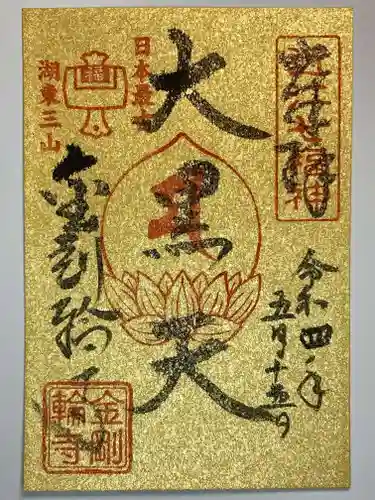 奉拝
七福神
令和四年
五月十五日
大黒天
日本最大
湖東三山
金剛輪寺
金剛
輪寺